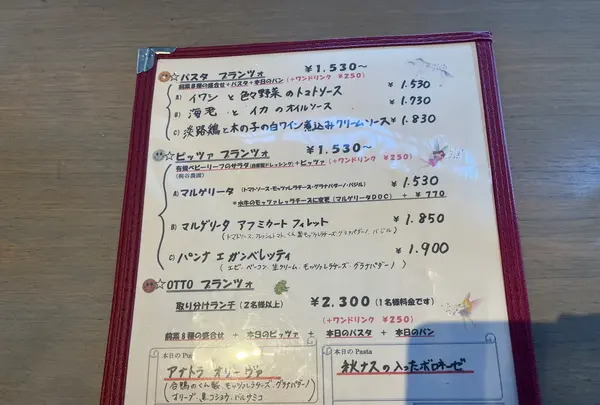 ☆パスタ プランツォ ¥1.530〜
前菜8種の盛合せ+パスタ+本日のパン(+ワンドリンク ¥250)
A) イワシと色々野菜のトマトソース ¥1.530
B) 海老とイカのオイルソース ¥1.730
C) 淡路鶏と木の子の白ワイン煮込みクリームソース ¥1.830
☆ピッツァ プランツォ ¥1.530〜
有機ベビーリーフのサラダ(自家製ドレッシング)+ピッツァ(+ワンドリンク ¥250)
A) マルゲリータ (トマトソース・モッツァレラチーズ・グラナパダーノ・バジル) ¥1.530
※水牛のモッツァレラチーズに変更(マルゲリータDOC) + ¥770
B) マルゲリータ アフミカート フィレット ¥1.850
(トマトソース、フレッシュトマト、くん製モッツァレラチーズ、グラナパダーノ、バジル)
C) パンナ エ ガンベレッティ ¥1.900
(エビ、ベーコン、生クリーム、モッツァレラチーズ、グラナパダーノ)
☆OTTO プランツォ
取り分けランチ(2名様以上) ¥2.300(1名様料金です)
(+ワンドリンク ¥250)
前菜8種の盛合せ + 本日のピッツァ + 本日のパスタ + 本日のパン
アナトラ オリーヴァ
(合鴨のくん製、モッツァレラチーズ、グラナパダーノ
オリーブ、黒コショウ、バルサミコ
本日の Pasta
秋ナスの入ったボロネーゼ